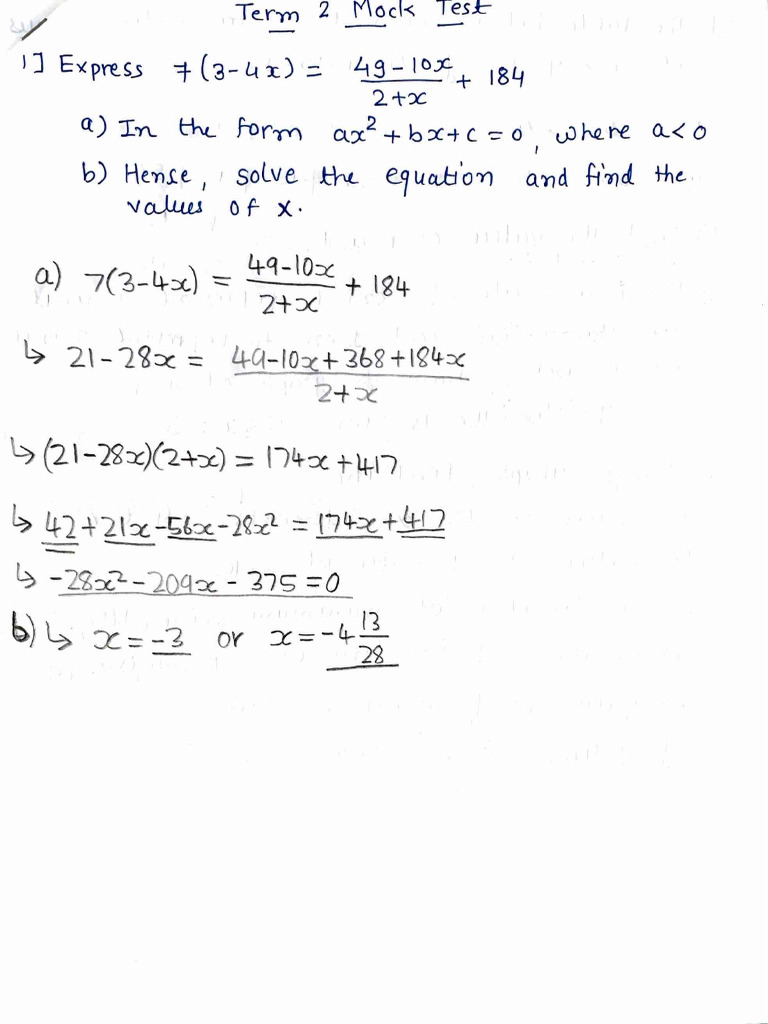 Term 2 Mock Test
1] Express 7(3-4x) = \frac{49-10x}{2+x} + 184
a) In the form ax² + bx+c = 0, where a<0
b) Hense, solve the equation and find the
values of x.
a) 7(3-4x) = \frac{49-10x}{2+x} + 184
↳ 21-28x = \frac{49-10x+368+184x}{2+x}
↳ (21-28x)(2+x) = 174x+417
↳ 42+21x-56x-28x² = 174x+417
↳ -28x²-209x-375=0
b) ↳ x=-3 or x=-4\frac{13}{28}